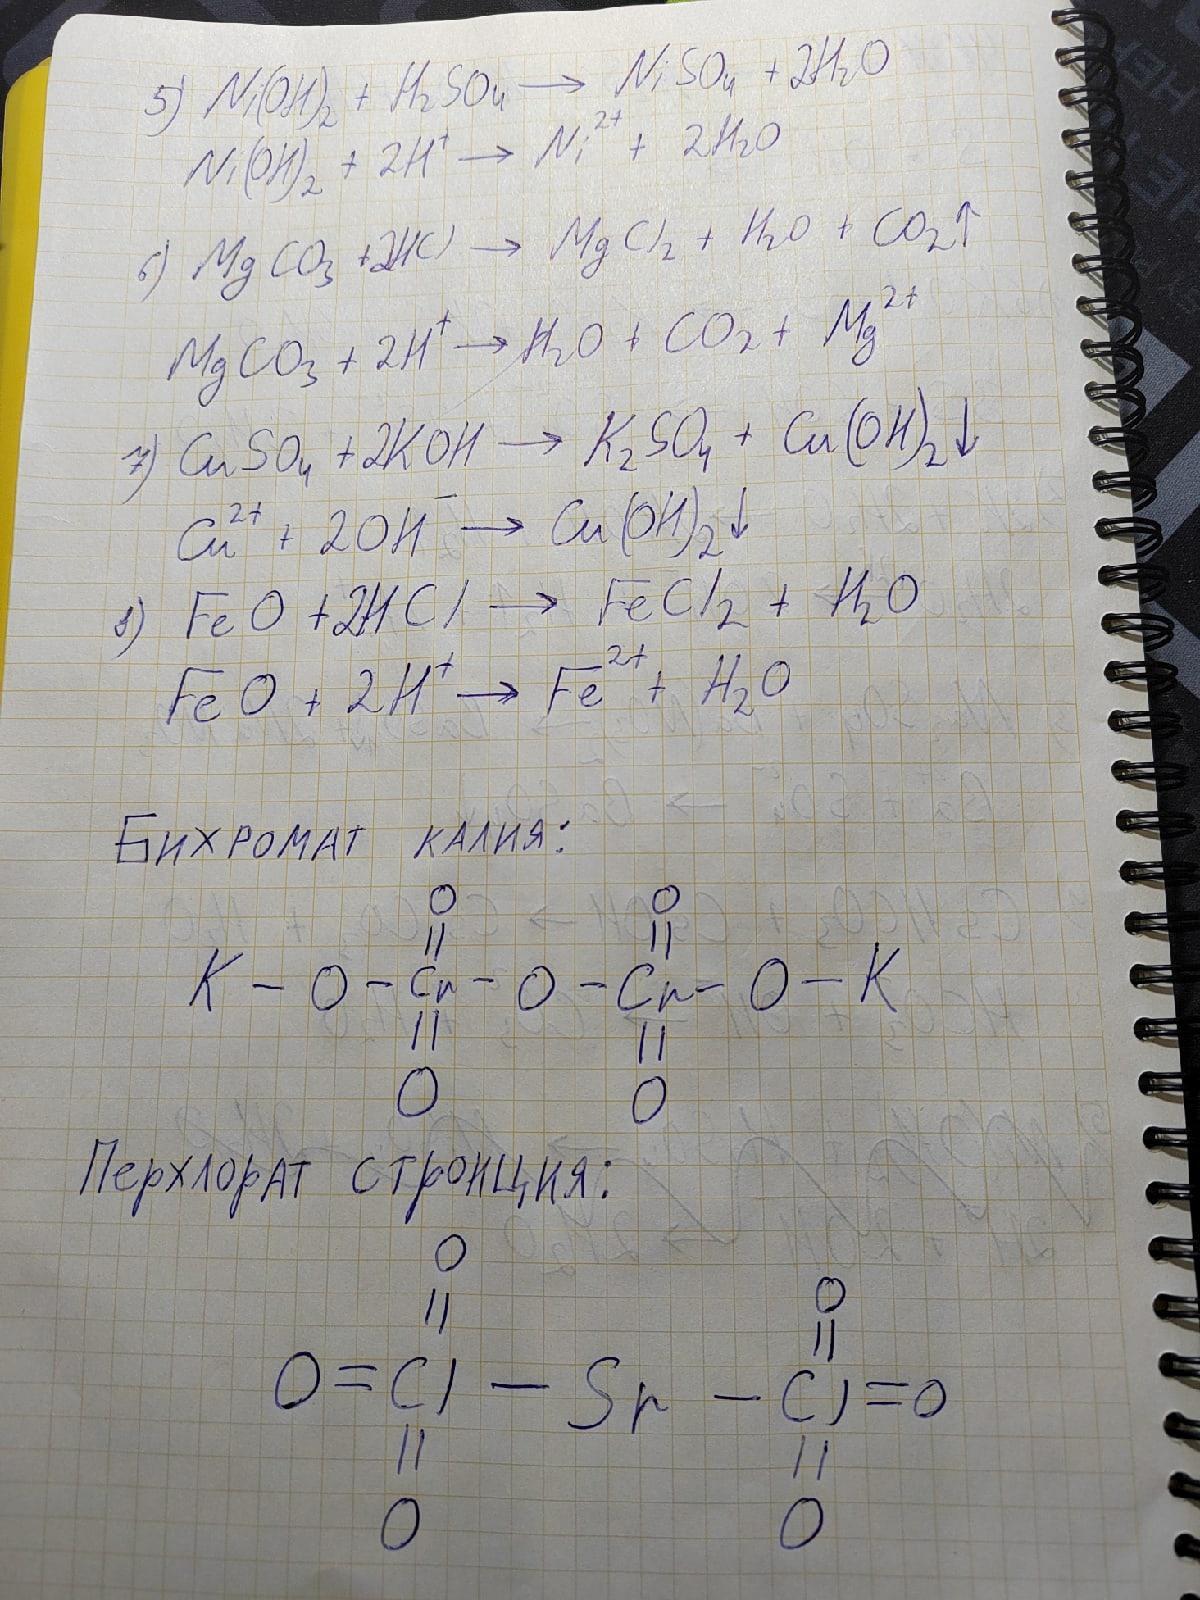 5) Ni(OH)₂ + H₂SO₄ → NiSO₄ + 2H₂O
Ni(OH)₂ + 2H⁺ → Ni²⁺ + 2H₂O
6) MgCO₃ + 2HCl → MgCl₂ + H₂O + CO₂↑
MgCO₃ + 2H⁺ → H₂O + CO₂ + Mg²⁺
7) CuSO₄ + 2KOH → K₂SO₄ + Cu(OH)₂↓
Cu²⁺ + 2OH⁻ → Cu(OH)₂↓
8) FeO + 2HCl → FeCl₂ + H₂O
FeO + 2H⁺ → Fe²⁺ + H₂O
Бихромат калия:
O O
|| ||
K – O – Cr – O – Cr – O – K
|| ||
O O
Перхлорат стронция:
O O
|| ||
O = Cl – Sr – Cl = O
|| ||
O O